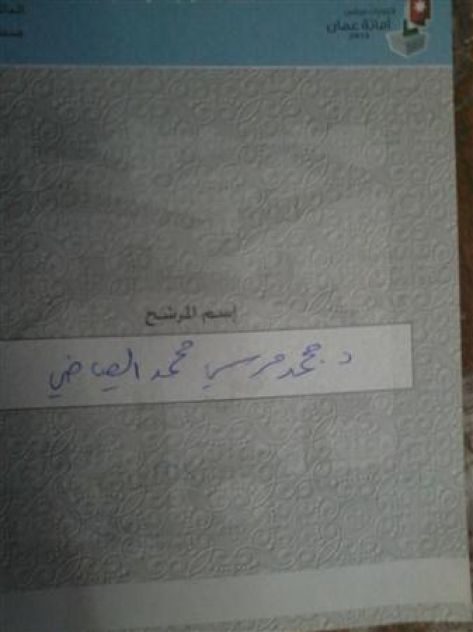 انتخابات مجلس
أمانة عمان
2013
إسم المرشح
د. محمد مرسي محمد العياضي